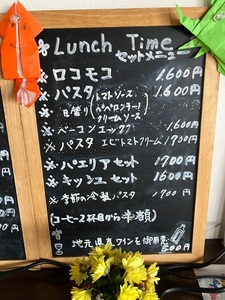 ※ Lunch Time
セットメニュー
※ ロコモコ 1.600円
※ パスタ 1.600円
※ 日替り (トマトソース
ペペロンチーノ
クリームソース)
※ ベーコンエッグ 1,600円
※ パスタ エビトマトクリーム 1,700円
※ パエリアセット 1700円
※ キッシュセット 1600円
※ 季節の冷製パスタ 1700円
(コーヒー2杯目から半額)
地元県産ワインを御用意
500円